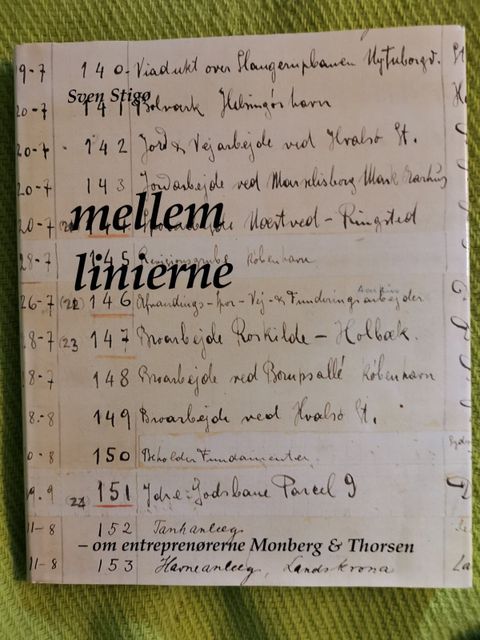 9-7 140 Viadukt over Slangerupbanen Nytuborgv.
Sven Stigø
20-7 141 Bolværk Helsingørs havn
20-7 142 Jord & Vejarbejde ved Hvalsø St.
20-7 143 Jordarbejde ved Marselisborg Mark Aarhus
mellem
20-7 144 Næstved - Ringsted
linierne
28-7 145 København
26-7 (22) 146 Afvandings- Spor- Vej- & Funderingsarbejder
8-7 (23 147 Broarbejde Roskilde - Holbæk.
8-7 148 Broarbejde ved København
8-8 149 Broarbejde ved Hvalsø St.
0-8 150 Beholder Fundamenter
9.9 24 151 Ydre-Godsbane Parcel 9
11-8 152 Tankanlæg
– om entreprenørerne Monberg & Thorsen
11-8 153 Havneanlæg, Landskrona